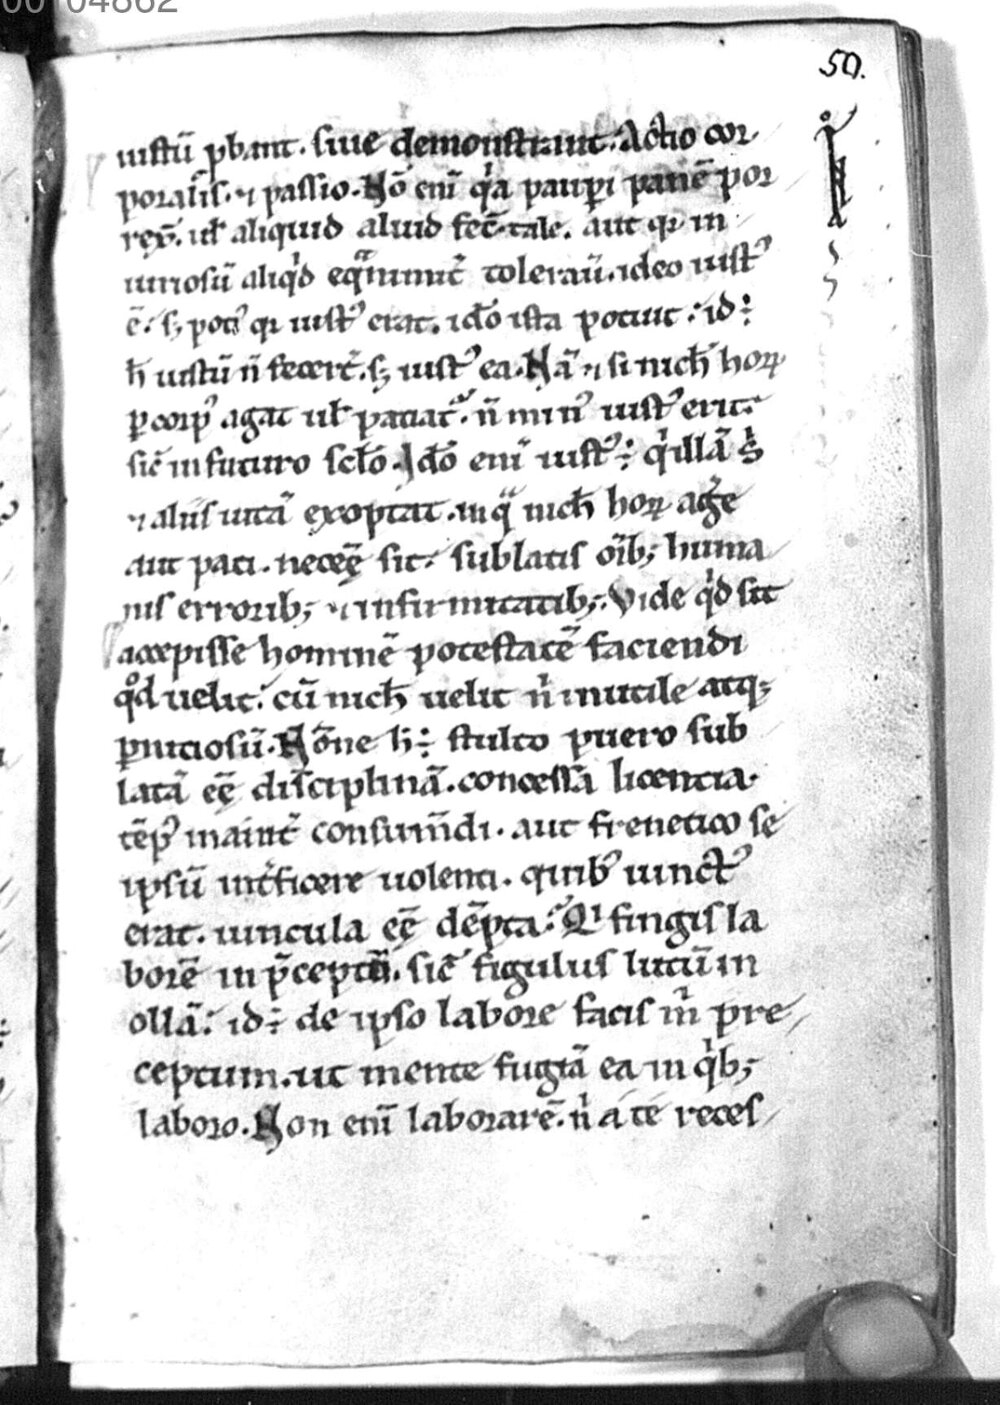 00104862
50.
iustũ ꝓbant. siue demonstrant. Actio cor
poralis. ⁊ passio. Nō eni͂ qͣa paupi panē por
rex̄. ul̓ aliquid aliud fec̄ tale. aut qꝛ in
iuriosũ aliqͥd eqͣnimit̃ tolerau̅. ideo iustꝰ
ē. sꝫ potiꝰ qꝛ iustꝰ erat. idō ista potuit. id÷
h̄ iustũ n̄ fecer̃t. sꝫ iustꝰ ea. Nā ⁊ si nich̄ hoꝝ
ꝑ corpꝰ agat ul̓ patiat᷑. n̄ minꝰ iustꝰ erit.
sic̄ in futuro sclō. Idō eni͂ iustꝰ÷ qͥ illā s̾
⁊ aliis uitā exoptat. in qͣ nich̄ hoꝝ aḡe
aut pati. necēē sit. sublatis oīb; huma
nis errorib; ⁊ infirmitatib;. Vide qͥd sit
accepisse hominē potestatē faciendi
qͦd uelit. cū nich̄ uelit nͥ inutile atq;
ꝑniciosũ. Nōne h÷ stulto puero sub
latā eē disciplinā. concessā licentia
tēpꝰ inanit̃ consum̄di. aut frenetico se
ipsũ int̃ficere uolenti. quibꝰ uinctꝰ
erat. uincula eē dēpta. Qͥ fingis la
borē in p̄ceptũ. sic̄ figulus lutũ in
ollā. id÷ de ipso labore facis m̊ pre
ceptum. ut mente fugiā ea in qͥb;
laboro. Non eni͂ laborarē. nͥ a te reces